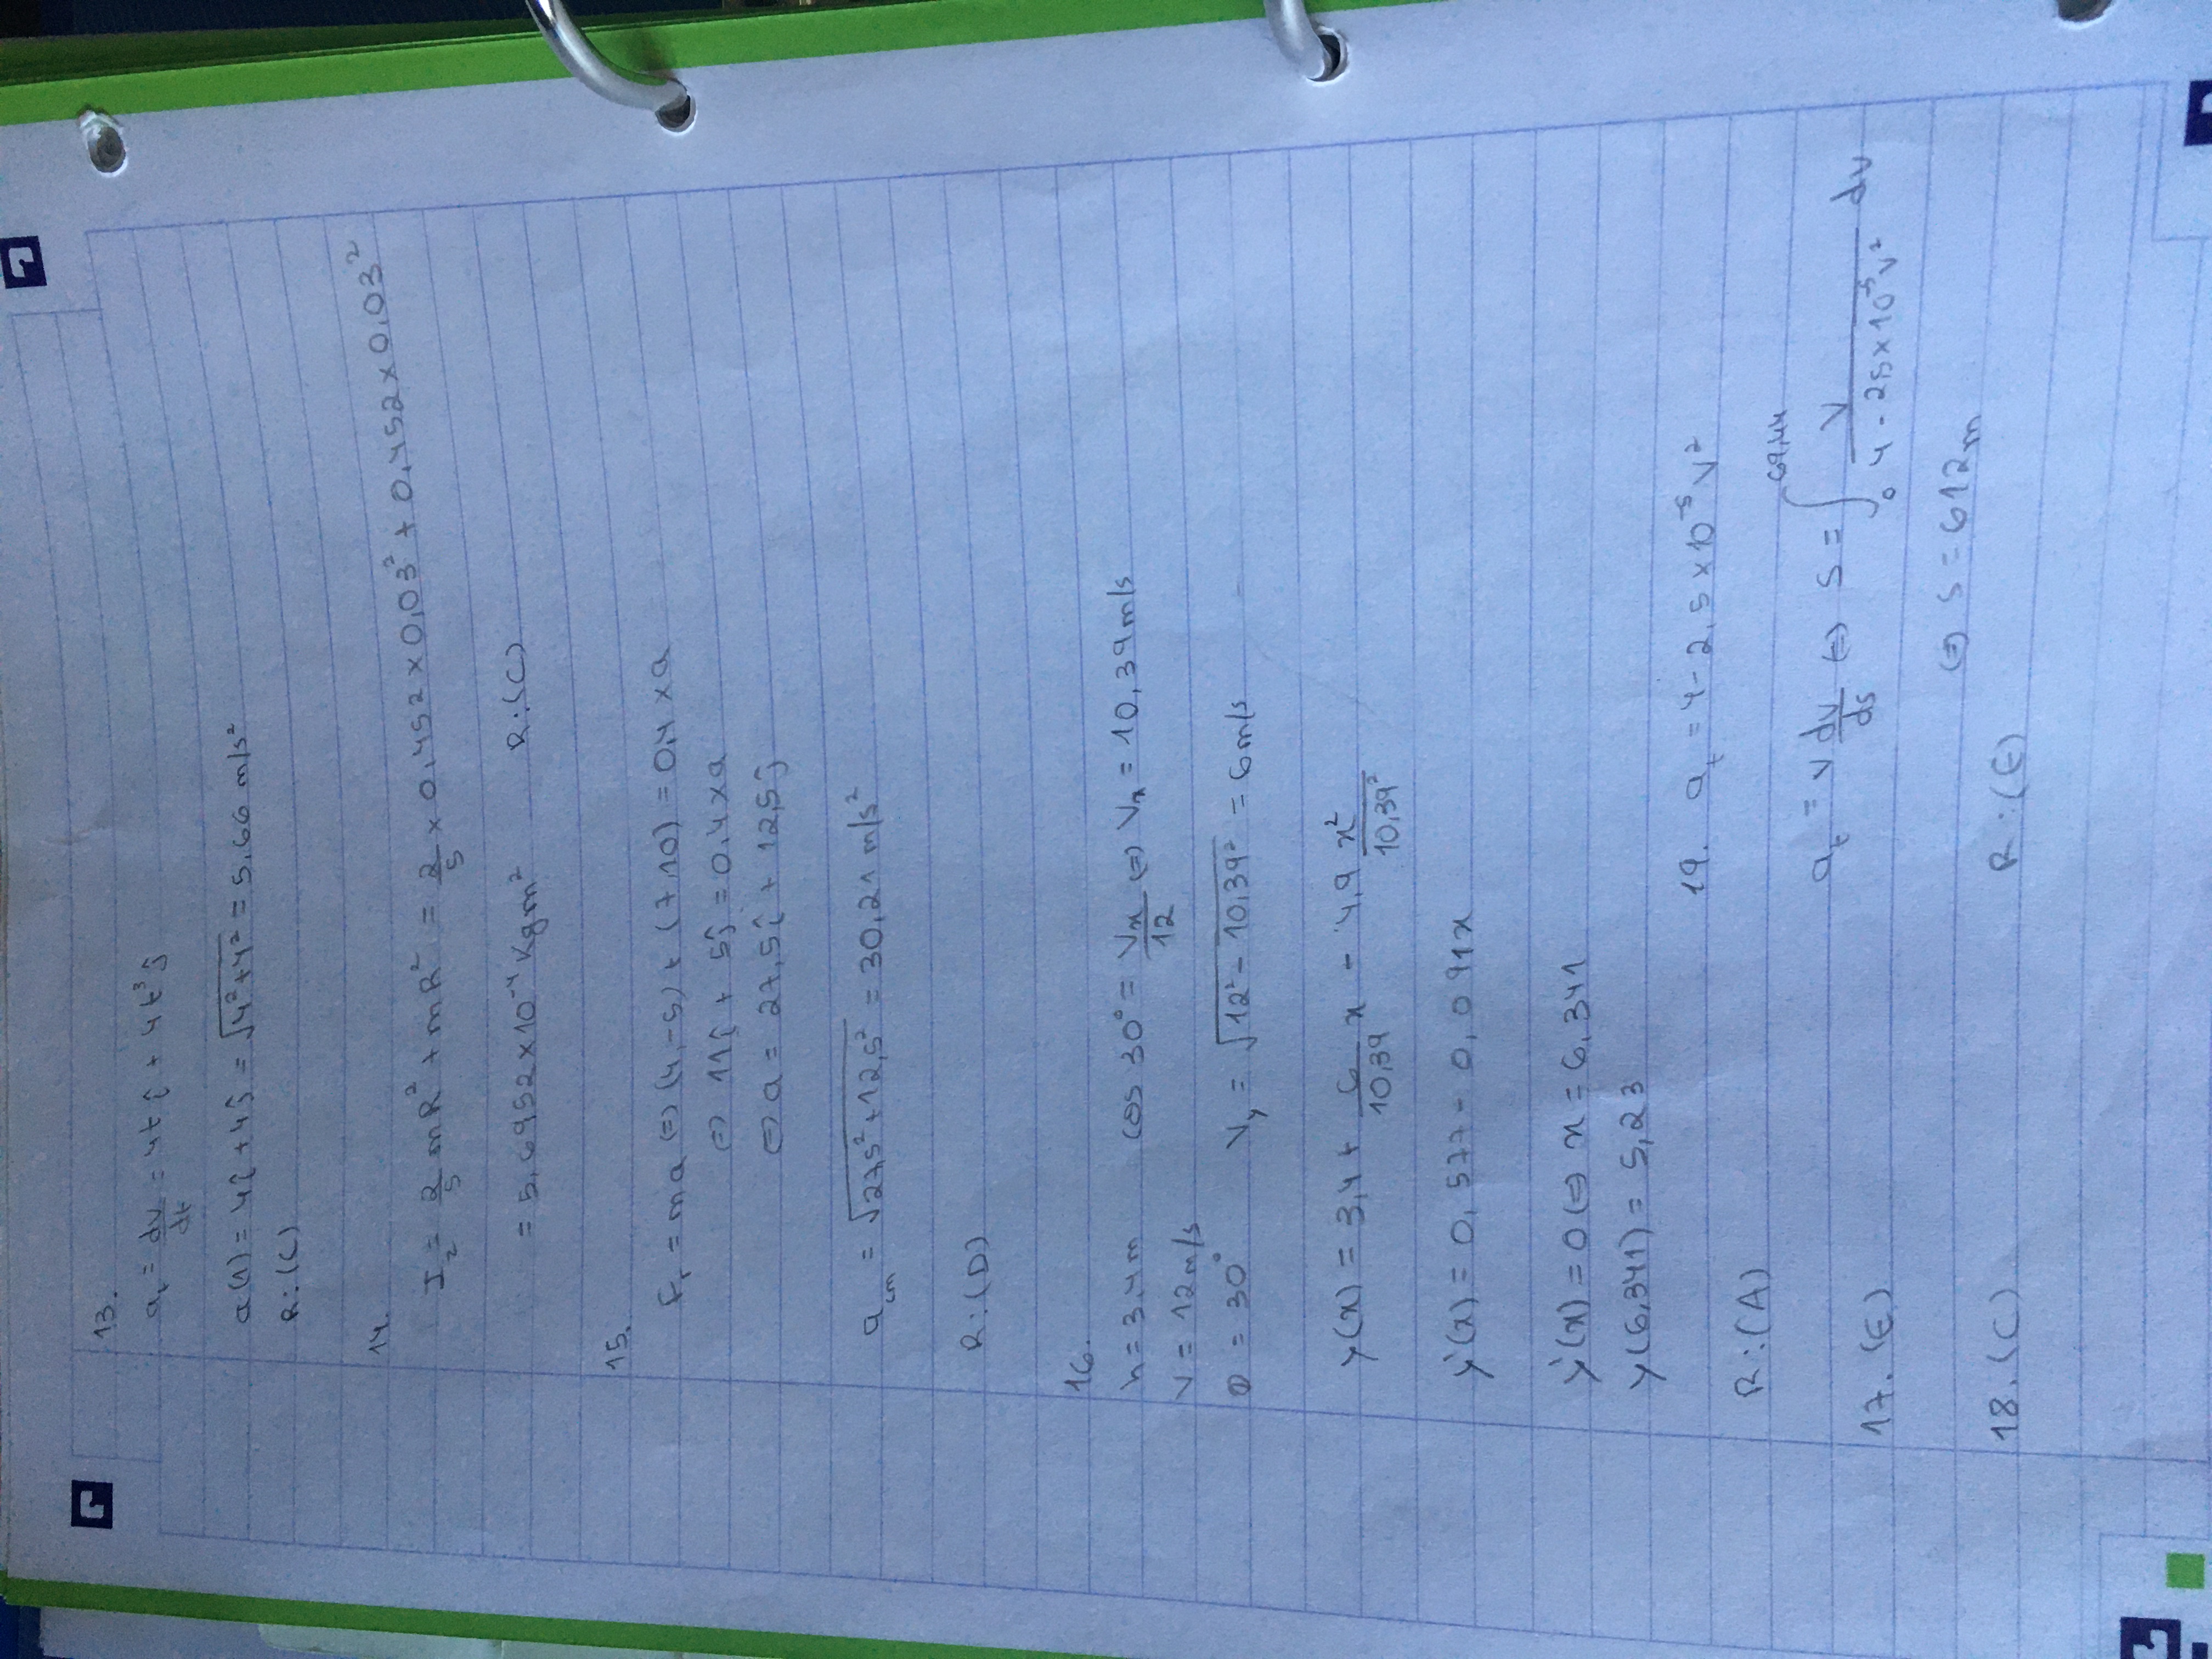 13.
a_t = dv/dt = 4t î + 4t³ ĵ
a(1) = 4î + 4ĵ = √(4²+4²) = 5,66 m/s²
R: (C)
14.
I_z = 2/5 mR² + mR² = 2/5 × 0,452 × 0,03² + 0,452 × 0,03²
= 5,6952 × 10⁻⁴ Kgm² R: (C)
15.
F_r = ma (=) (4,-5) + (7,10) = 0,4 × a
(=) 11î + 5ĵ = 0,4 × a
(=) a = 27,5î + 12,5ĵ
a_cm = √(27,5² + 12,5²) = 30,21 m/s²
R: (D)
16.
h = 3,4m cos 30° = Vx/12 (=) Vx = 10,39 m/s
V = 12 m/s
θ = 30° Vy = √(12² - 10,39²) = 6 m/s
y(x) = 3,4 + 6/10,39 x - 4,9 x²/10,39²
y'(x) = 0,577 - 0,091x
y'(x) = 0 (=) x = 6,341
y(6,341) = 5,23
R: (A)
17. (E)
18. (C)
19. a_t = 4 - 2,5 × 10⁻⁵ V²
a_t = v dv/ds (=) s = ∫₀^69,44 v/(4 - 25×10⁻⁵v²) dv
(=) s = 612m
R: (E)